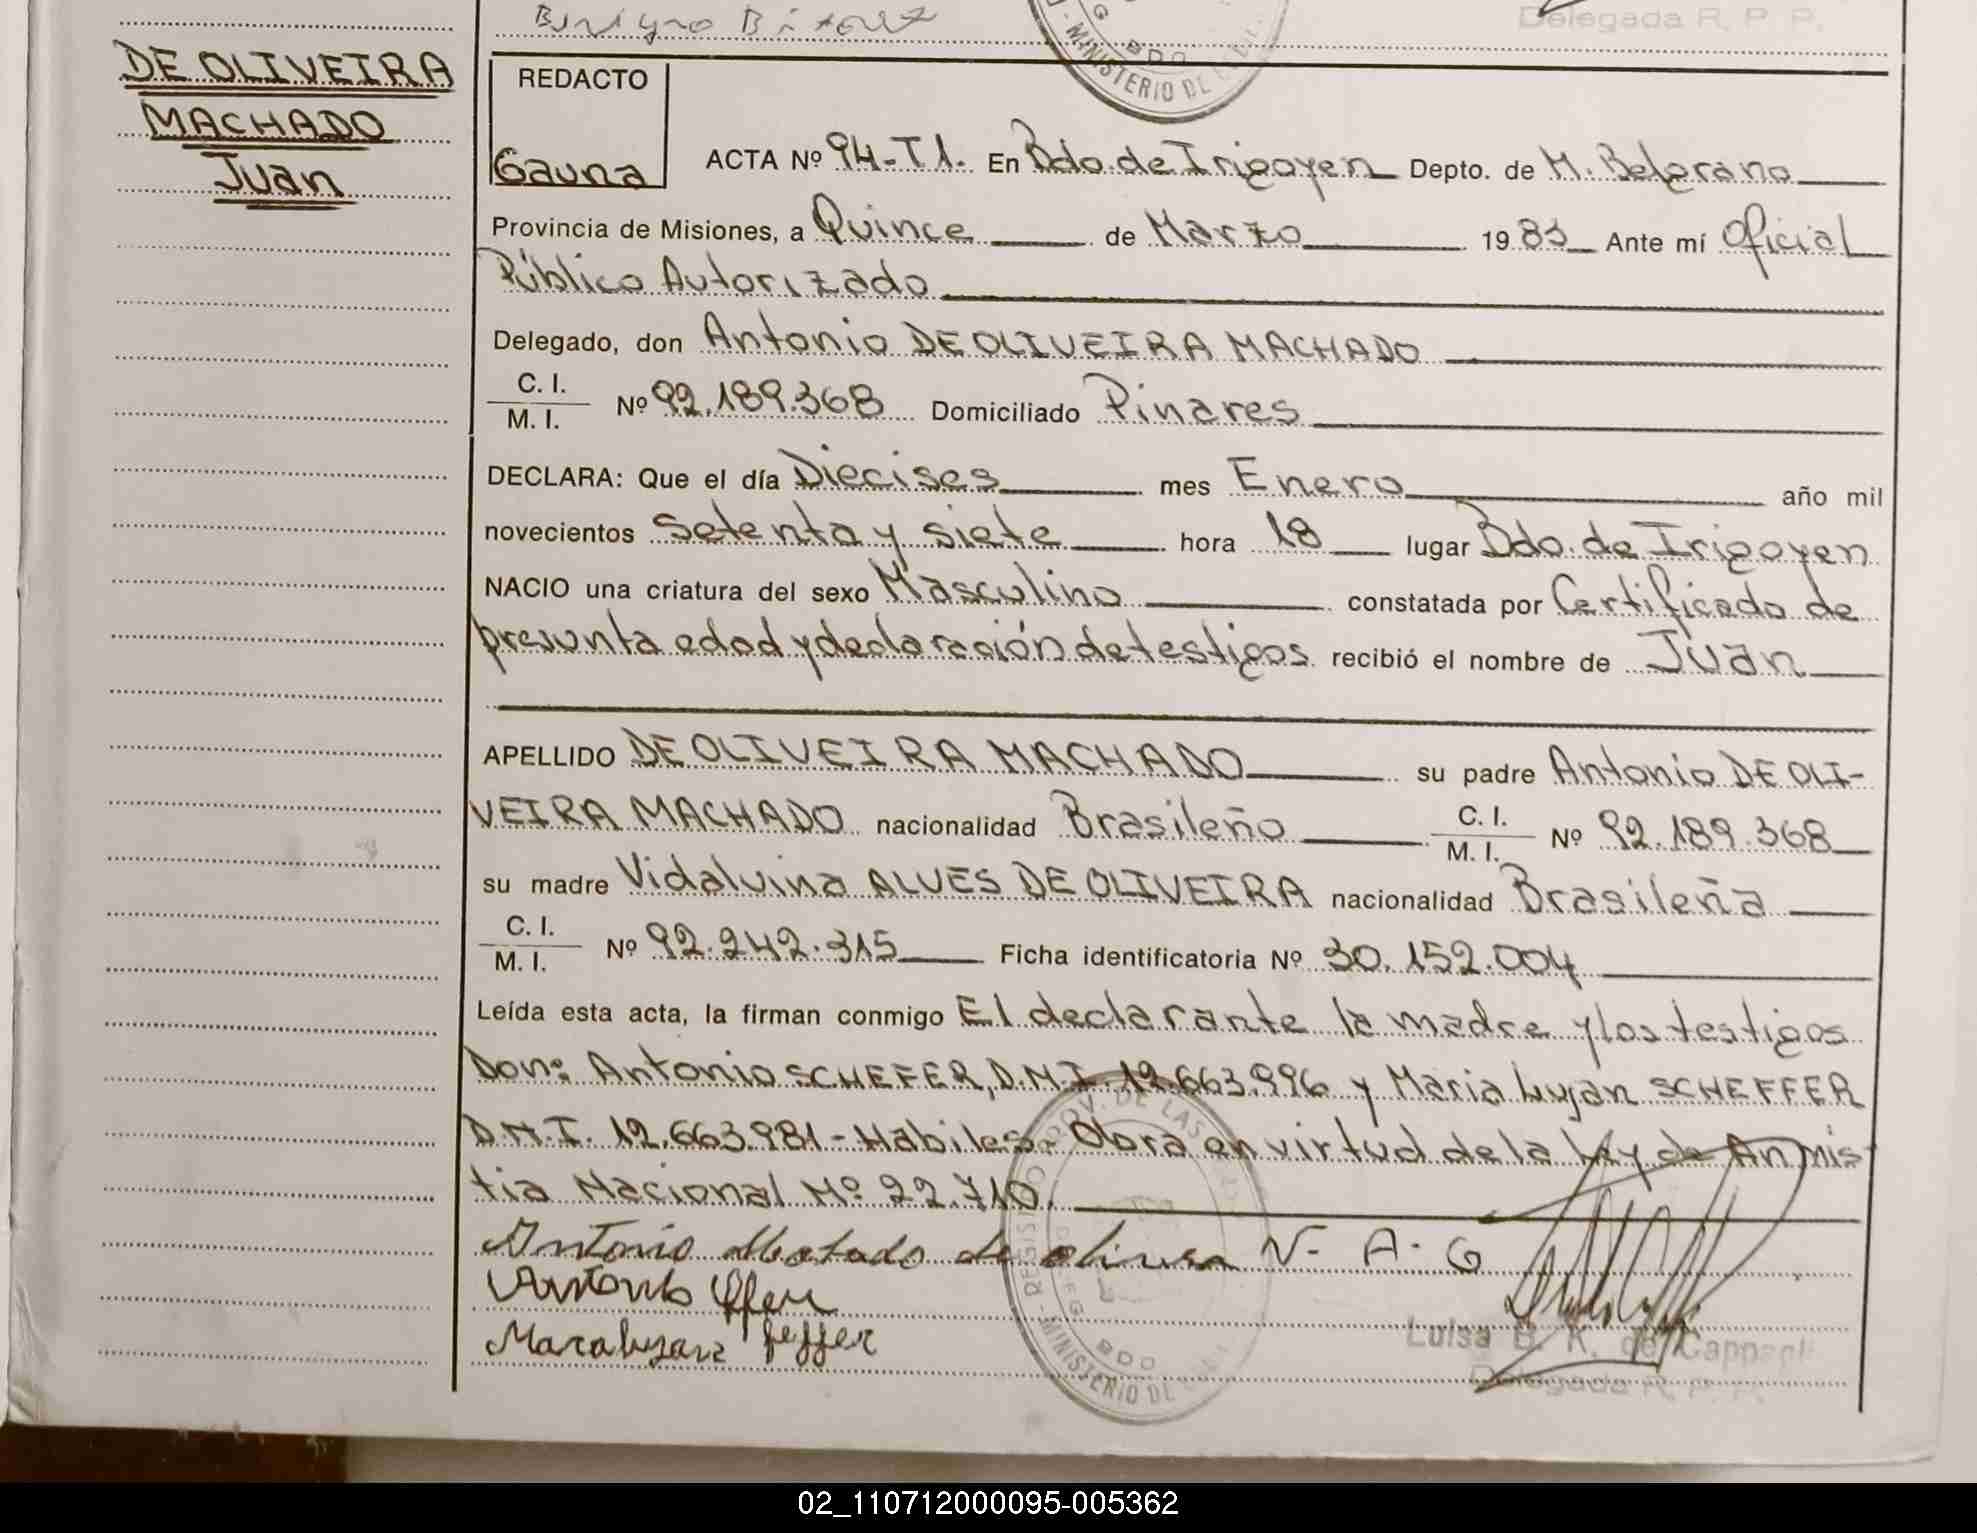 Delegada R. P. P.
MINISTERIO DE
BDO
DE OLIVEIRA
MACHADO
Juan
REDACTO
Gauna
ACTA Nº 94-T1. En Bdo. de Irigoyen Depto. de M. Belgrano
Provincia de Misiones, a Quince de Marzo 1983 Ante mí Oficial
Público Autorizado
Delegado, don Antonio DE OLIVEIRA MACHADO
C. I.
M. I. Nº 92.189.368 Domiciliado Pinares
DECLARA: Que el día Diecises mes Enero año mil
novecientos setenta y siete hora 18 lugar Bdo. de Irigoyen
NACIO una criatura del sexo Masculino constatada por Certificado de
presunta edad y declaración de testigos recibió el nombre de Juan
APELLIDO DE OLIVEIRA MACHADO su padre Antonio DE OLI-
VEIRA MACHADO nacionalidad Brasileño C. I.
M. I. Nº 92.189.368
su madre Vidalvina ALVES DE OLIVEIRA nacionalidad Brasileña
C. I.
M. I. Nº 92.242.315 Ficha identificatoria Nº 30.152.004
Leída esta acta, la firman conmigo El declarante la madre y los testigos
Don: Antonio SCHEFER, D.N.I. 12.663.996 y Maria Lujan SCHEFFER
D.N.I. 12.663.981 - Habiles.- Obra en virtud de la Ley de Anmis
tia Nacional Nº 22.710.
Antonio Machado de olivera V- A- G
Antonio
Luisa B. K. de
Delegada R. P. P.
MINISTERIO DE
BDO
02_110712000095-005362